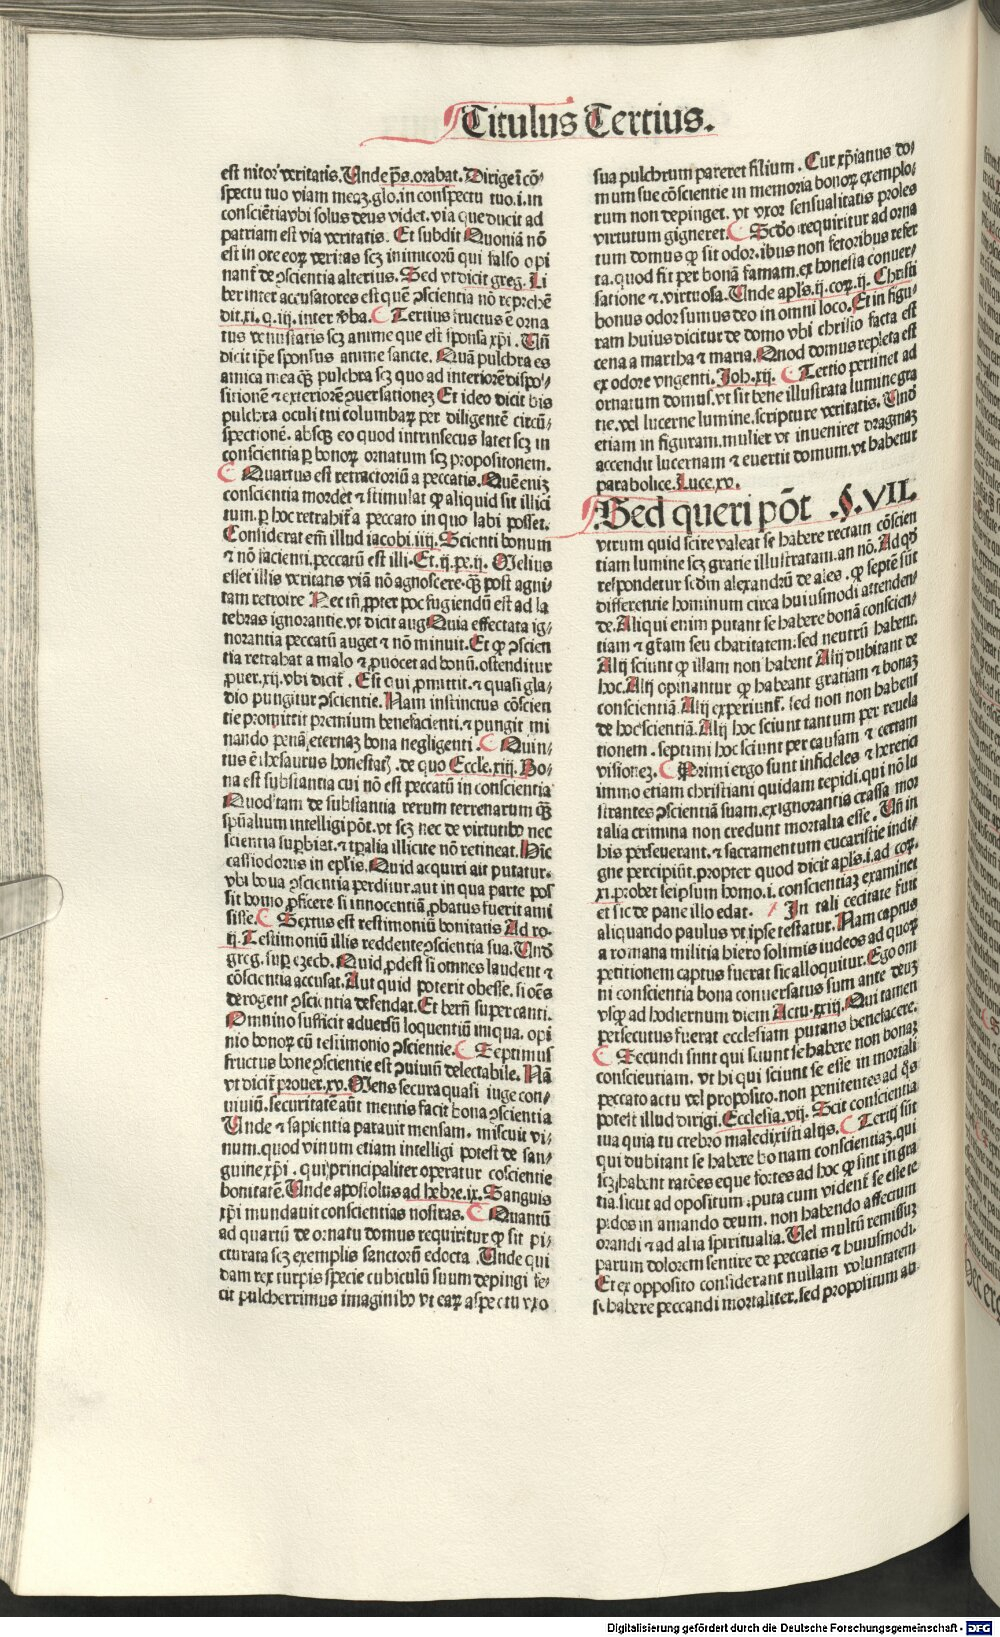 Titulus Tertius.
est nitor veritatis. Unde ps. orabat. Dirige ī cō⸗
spectu tuo viam meaꝫ. glo. in conspectu tuo. i. in
consciētia vbi solus deus videt. via que ducit ad
patriam est via veritatis. Et subdit Quoniā nō
est in ore eoꝝ veritas scꝫ inimicorū qui falso opi
nanť de ↄscientia alterius. Sed vt dicit greg. Li
ber inter accusatores est quē ↄscientia nō reprehē
dit. xi. q. iij. inter v̾ba. Tertius fructus ē orna
tus venustatis scꝫ anime que est sponsa xp̄i. Uñ
dicit ip̄e sponsus anime sancte. Quā pulchra es
amica mea q̄ꝫ pulchra scꝫ quo ad interiorē dispo⸗
sitionē ⁊ exteriorē ↄuersationeꝫ Et ideo dicit bis
pulchra oculi tui columbaꝝ per diligentē circū⸗
spectionē. absqꝫ eo quod intrinsecus latet scꝫ in
conscientia ꝑ bonoꝝ ornatum scꝫ propositonem.
Quartus est retractoriū a peccatis. Quē eniꝫ
conscientia mordet ⁊ stimulat ꝙ aliquid sit illici
tum. ꝑ hoc retrahiť a peccato in quo labi posset.
Considerat em̄ illud iacobi. iiij. Scienti bonum
⁊ nō facienti. peccatū est illi. Et. ij. pe. ij. Melius
esset illis veritatis viā nō agnoscere. q̄ꝫ post agni⸗
tam retroire Nec tñ ꝓpter hoc fugiendū est ad la
tebras ignorantie. vt dicit aug Quia effectata ig⸗
norantia peccatū auget ⁊ nō minuit. Et ꝙ ↄscien
tia retrahat a malo ⁊ ꝓuocet ad bonū. ostenditur
ꝓuer. xij. vbi dicit̄. Est qui ꝓmittit. ⁊ quasi gla⸗
dio pungitur ↄscientie. Nam instinctus cōscien
tie promittit premium benefacienti. ⁊ pungit mi
nando penā eternaꝫ bona negligenti. Quin⸗
tus ē thesaurus honestatꝭ. de quo Eccle. xiij. Bo⸗
na est substantia cui nō est peccatū in conscientia
Quod tam de substantia rerum terrenarum q̄ꝫ
spūalium intelligi pōt. vt scꝫ nec de virtutibꝰ nec
scientia suꝑbiat. ⁊ tꝑalia illicite nō retineat. Hic
cassiodorus in epl̄is. Quid acquiri ait putatur.
vbi bona ↄscientia perditur. aut in qua parte pos
sit homo ꝓficere si innocentiā ꝓbatus fuerit ami
sisse. Sextus est testimoniū bonitatis Ad ro.
ij. Testimoniū illis reddente ↄscientia sua. Unde
greg. suꝑ ezech. Quid ꝓdest si omnes laudent ⁊
cōscientia accusat. Aut quid poterit obesse. si oēs
derogent ↄscientia defendat. Et berñ super canti.
Omnino sufficit aduersū loquentiū iniqua. opi
nio bonoꝝ cū testimonio ↄscientie. Septimus
fructus bone ↄscientie est ↄuiuiū delectabile. Nā
vt dicit̄ prouer. xv. Mens secura quasi iuge con⸗
uiuiū. securitatē aūt mentis facit bona ↄscientia
Unde ⁊ sapientia parauit mensam. miscuit vi⸗
num. quod vinum etiam intelligi potest de san⸗
guine xp̄i. qui principaliter operatur coscientie
bonitatē. Unde apostolus ad hebre. ix. Sanguis
xp̄i mundauit conscientias nostras. Quantū
ad quartū de ornatu domus requiritur ꝙ sit pi⸗
cturata scꝫ exemplis sanctorū edocta. Unde qui
dam rex turpis specie cubiculū suum depingi fe⸗
cit pulcherrimus imaginibꝰ vt eaꝝ aspectu vxo
sua pulchrum pareret filium. Cur xp̄ianus do⸗
mum sue cōscientie in memoria bonoꝝ exemplo⸗
rum non depinget. vt vxor sensualitatis proles
virtutum gigneret. Scdo requiritur ad orna
tum domus ꝙ sit odoribus non fetoribus refer
ta. quod fit per bonā famam. ex honesta conuer⸗
satione ⁊ virtuosa. Unde apls. ij. coꝝ. ij. Christi
bonus odor sumus deo in omni loco. Et in figu⸗
ram huius dicitur de domo vbi christo facta est
cena a martha ⁊ maria. Quod domus repleta est
ex odore vngenti. Joh. xij. Tertio pertinet ad
ornatum domus. vt sit bene illustrata lumine gra
tie. vel lucerne lumine. scripture veritatis. Unde
etiam in figuram. mulier vt inueniret dragmaꝫ
accendit lucernam ⁊ euertit domum. vt habetur
parabolice. Luce. xv.
Sed queri pōt .§. VII.
vtrum quid scire valeat se habere rectam cōscien
tiam lumine scꝫ gratie illustratam. an nō. Ad qđ
respondetur scdm alexandrū de ales. ꝙ septē sūt
differentie hominum circa huiusmodi attenden⸗
de. Aliqui enim putant se habere bonā conscien⸗
tiam ⁊ grām seu charitatem: sed neutrū habent.
Alij sciunt ꝙ illam non habent Alij dubitant de
hoc. Alij opinantur ꝙ habeant gratiam ⁊ bonaꝫ
conscientiā. Alij experiunť. sed non non habent
de hoc scientiā. Alij hoc sciunt tantum per reuela
tionem. septimi hoc sciunt per causam ⁊ certam
visioneꝫ. Primi ergo sunt infideles ⁊ heretici
immo etiam christiani quidam tepidi. qui nō lu
strantes ↄscientiā suam. ex ignorantia crassa mor
talia crimina non credunt mortalia esse. Uñ in
his perseuerant. ⁊ sacramentum eucaristie indi⸗
gne percipiūt. propter quod dicit apls. i. ad coꝝ.
xi. probet seipsum homo. i. conscientiaꝫ examinet
et sic de pane illo edat. In tali cecitate fuit
aliquando paulus vt ipse testatur. Nam captus
a romana militia hierosolimis iudeos ad quoꝝ
petitionem captus fuerat sic alloquitur. Ego om
ni conscientia bona conuersatus sum ante deuꝫ
vsqꝫ ad hodiernum diem Actu. xxiij. Qui tamen
persecutus fuerat ecclesiam putans benefacere.
Secundi sunt qui sciunt se habere non bonaꝫ
conscientiam. vt hi qui sciunt se esse in mortali
peccato actu vel proposito. non penitentes ad q̄s
potest illud dirigi. Ecclesia. vij. Scit conscientia
tua quia tu crebro maledixisti alijs. Tertij sūt
qui dubitant se habere bonam conscientiaꝫ. qui
scꝫ habent ratōes eque fortes ad hoc ꝙ sint in gra
tia. sicut ad opositum: puta cum videnť se esse te
pidos in amando deum. non habendo affectum
orandi ⁊ ad alia spiritualia. Uel multū remissuꝫ
parum dolorem sentire de peccatis ⁊ huiusmodi.
Et ex opposito considerant nullam voluntatem
se habere peccandi mortaliter. sed propositum au
Digitalisierung gefördert durch die Deutsche Forschungsgemeinschaft - DFG